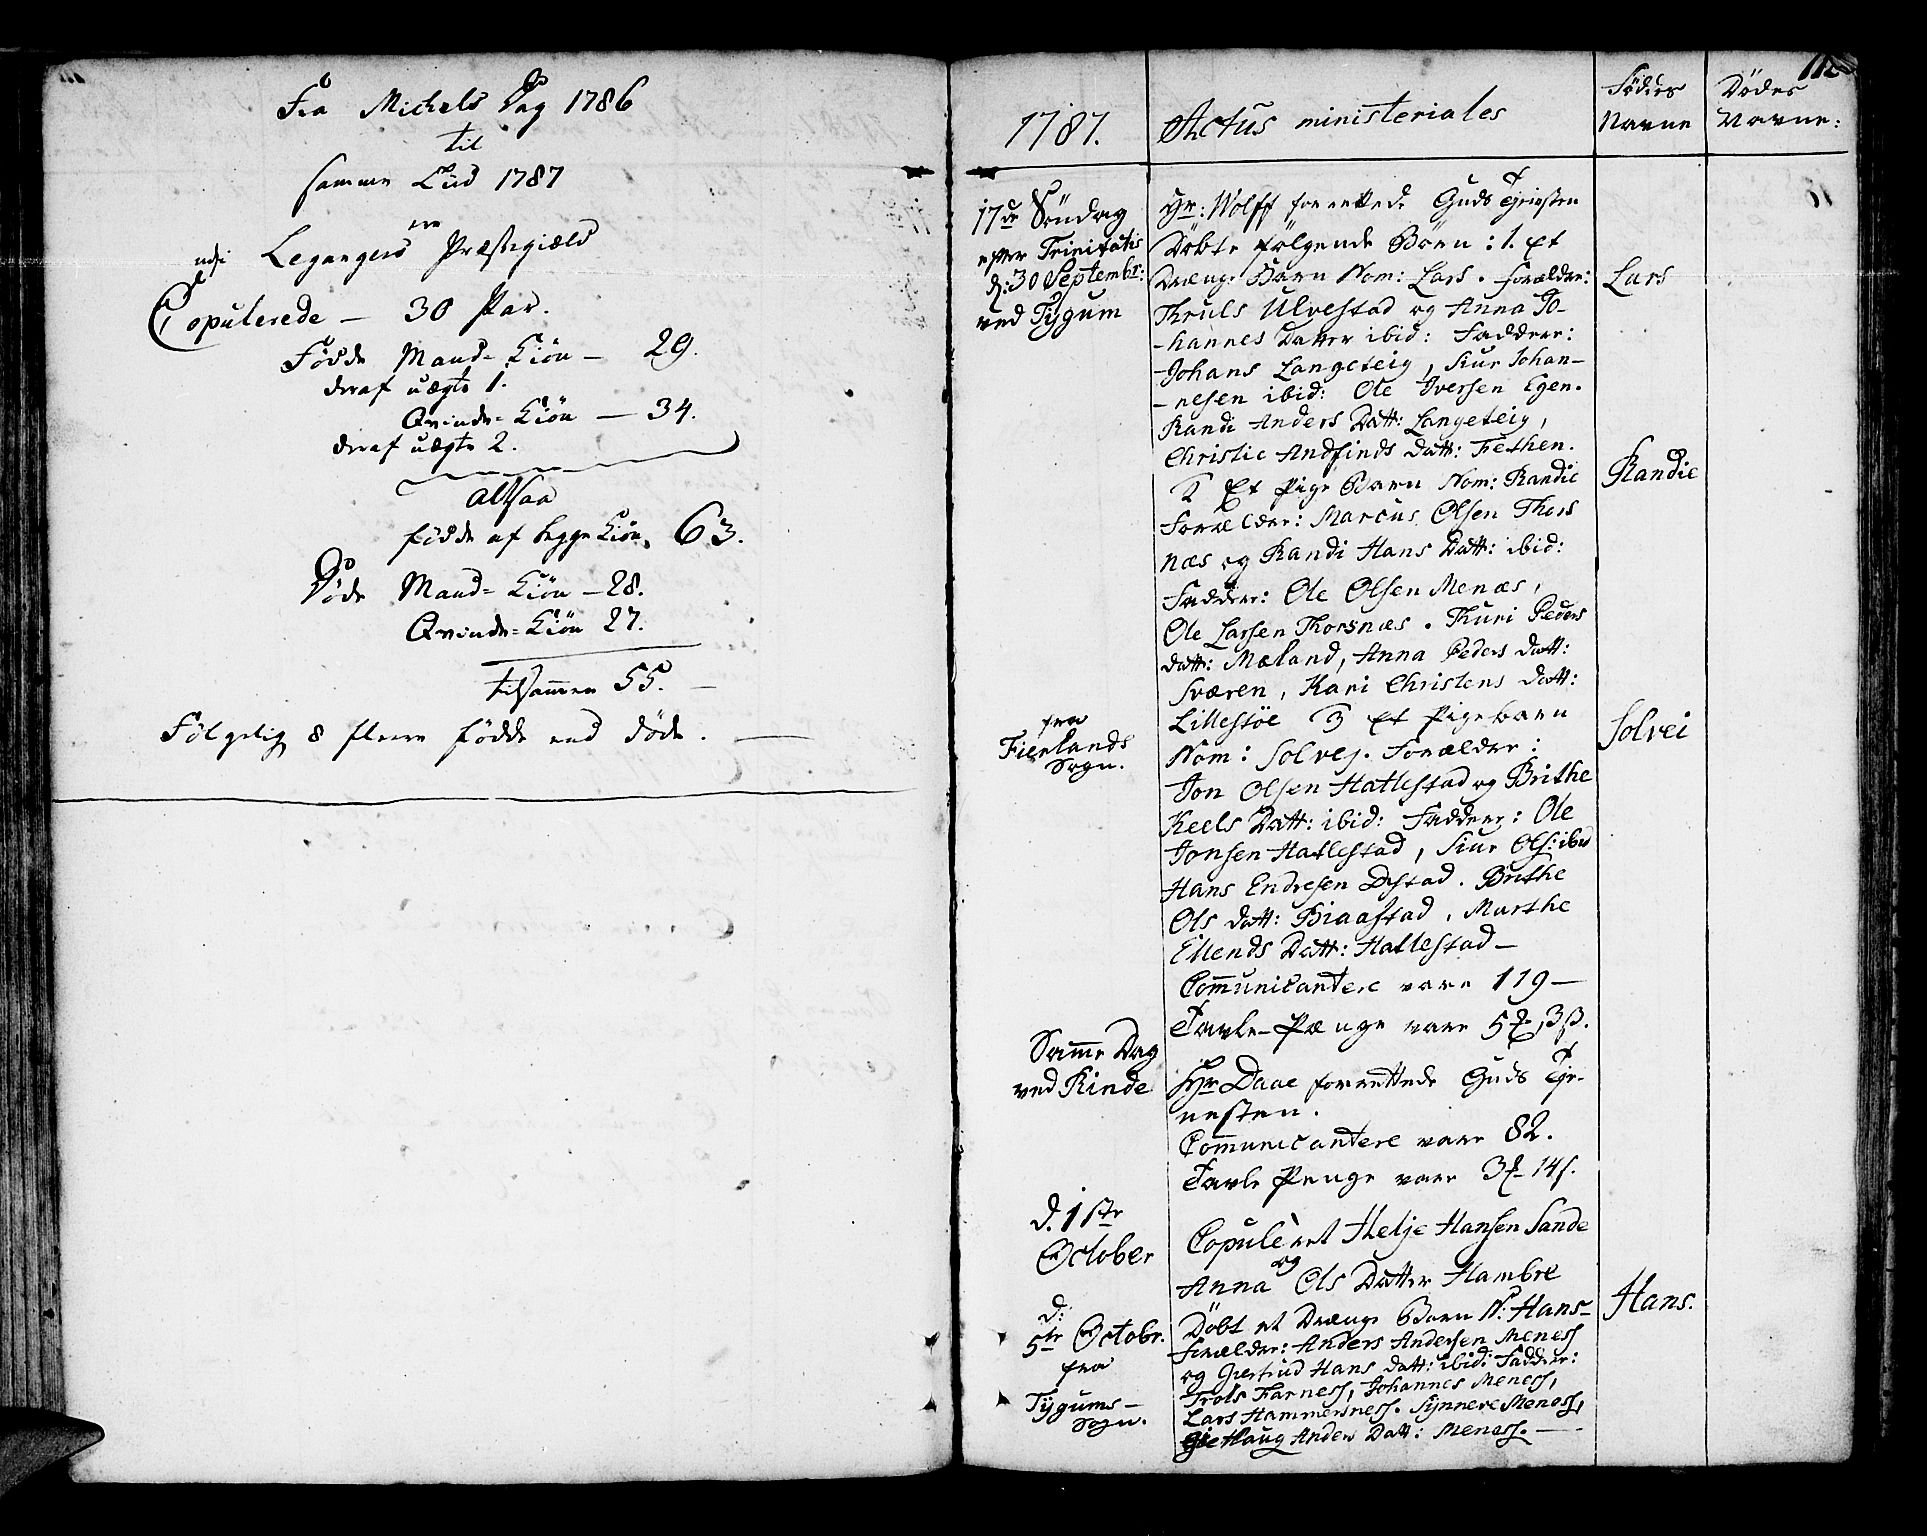 Fra Michels Dag 1786
til
samme Tiid 1787
ere
udi Legangers Præstegiæld
Copulerede – 30 Par.
Födde Mand-Kiön – 29.
deraf uægte 1.
Qvinde-Kiön – 34.
deraf uægte 2.
altsaa
födde af begge Kiön, 63.
Döde Mand-Kiön – 28.
Qvinde-Kiön 27.
tilsam̄en 55. –
Fölgelig 8 fleere födde end döde. –
112
1787.
Actus ministeriales
Födtes Navne
Dödes Navne:
17de Söndag
efter Trinitatis
d: 30 Septembr:
ved Tygum
Hr: Wolff forrettede Guds Tjenesten
Döbte fölgende Börn: 1. Et
Drænge Barn Nom: Lars. Forældre:
Lars
Thruls Ulvestad og Anna Jo-
-hannes Datter ibid: Faddere:
Johans Langeteig, Siur Johan-
-nesen ibid: Ole Iversen Egen.
Randi Anders Datt: Langeteig,
Christie Andfinds Datt: Fethen.
2 Et Pige Barn Nom: Randie
Randie
Forældre: Marcus Olsen Thors
næs og Randi Hans Datt: ibid:
Faddere: Ole Olsen Menæs,
Ole Larsen Thorsnæs. Thuri Peders
Datt: Mæland, Anna Peders Datt:
Sværen, Kari Christens Datt:
fra
Fierlands
Sogn.
Lillestöe 3 Et Pigebarn
Nom: Solvej. Forældre:
Solvei
Jon Olsen Hatlestad og Brithe
Keels Datt: ibid: Faddere: Ole
Jonsen Hatlestad, Siur Ols: ibid
Hans Endresen Distad. Brithe
Ols Datt: Biaastad, Marthe
Ellends Datt: Hatlestad –
Com̄unicantere vare 119 –
Tavle-Pænge vare 5 3 ß.
Sam̄e Dag
ved Rinde
Hr Daae forrettede Guds Tje-
nesten.
Com̄unicantere vare 82.
Tavle Penge vare 3 14 s.
d. 1ste
October
Copuleret Helje Hansen Sande
og
Anna Ols Datter Hambre
d:
5te Octobr.
fra
Tygums-
Sogn.
Döbt et Drænge Barn N: Hans-
Hans.
Forældre: Anders Andersen Meness
og Giertrud Hans Datt: ibid: Faddere:
Trols Farness, Johannes Meness,
Lars Hammersness. Synneve Meness,
Giethaug Anders Datt: Meness. –